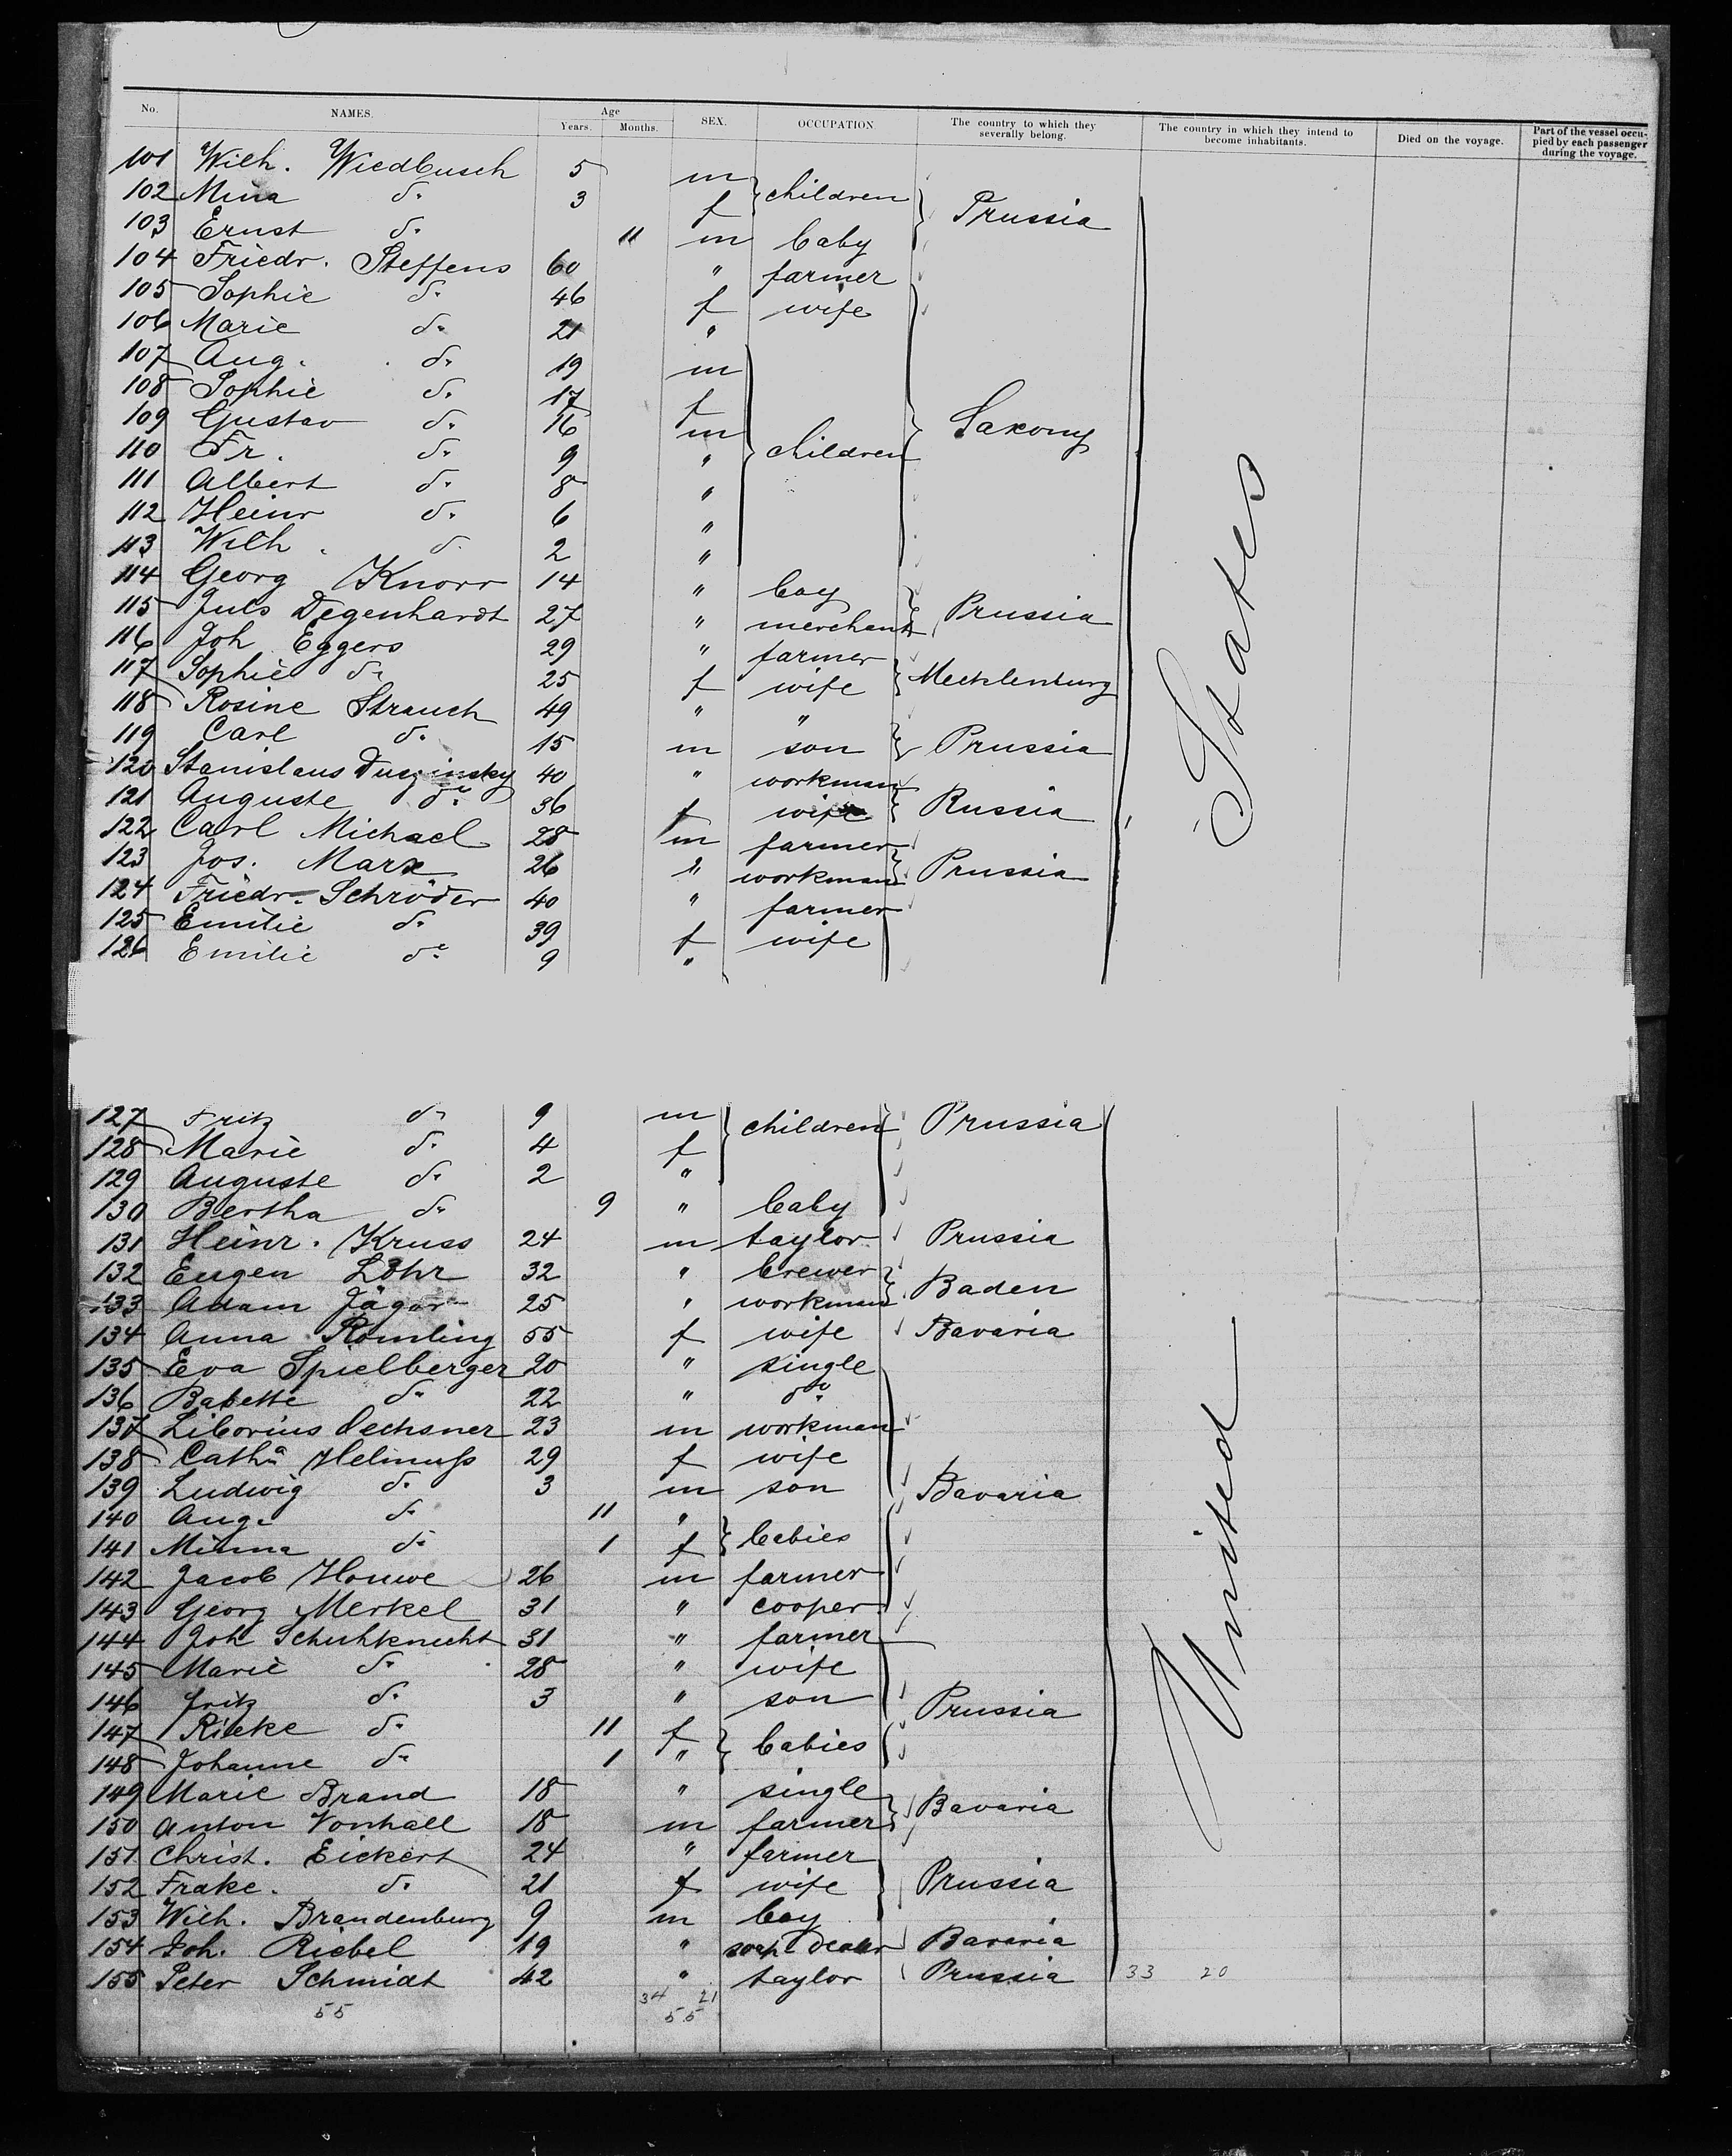 No. NAMES. Age Years. Months. SEX. OCCUPATION The country to which they severally belong. The country in which they intend to become inhabitants. Died on the voyage. Part of the vessel occupied by each passenger during the voyage.
101 Wilh. Wiedbusch 5 m
102 Mina do 3 f children Prussia
103 Ernst do 11 m baby
104 Friedr. Steffens 60 " farmer
105 Sophie do 46 f wife
106 Marie do 21 "
107 Aug. do 19 m
108 Sophie do 17 f
109 Gustav do 16 m Saxony
110 Fr. do 9 " children
111 Albert do 8 "
112 Heinr do 6 "
113 Wilh. do 2 "
114 Georg Knorr 14 " boy
115 Juls Degenhardt 27 " merchant Prussia
116 Joh Eggers 29 " farmer
117 Sophie do 25 f wife Mecklenburg
118 Rosine Strauch 49 " "
119 Carl do 15 m son Prussia
120 Stanislaus 40 " workman
121 Auguste do 36 f wife Russia
122 Carl Michael 28 m farmer
123 Jos. Marx 26 " workman Prussia
124 Friedr. Schröder 40 " farmer
125 Emilie do 39 f wife
126 Emilie do 9 "
127 Fritz do 9 m children Prussia
128 Marie do 4 f
129 Auguste do 2 "
130 Bertha do 9 " baby
131 Heinr. Kruss 24 m taylor Prussia
132 Eugen Löhr 32 " brewer Baden
133 Adam Jäger 25 " workman
134 Anna Römling 55 f wife Bavaria
135 Eva Spielberger 20 " single
136 Babette do 22 " do
137 Liborius Oechsner 23 m workman
138 Catha Helmuß 29 f wife
139 Ludwig do 3 m son Bavaria
140 Aug. do 11 "
141 Minna do 1 f babies
142 Jacob 26 m farmer
143 Georg Merkel 31 " cooper
144 Joh Schuhknecht 31 " farmer
145 Marie do 28 " wife
146 Fritz do 3 " son Prussia
147 Rieke do 11 f
148 Johanne do 1 " babies
149 Marie Brand 18 " single Bavaria
150 Anton Vonhall 18 m farmer
151 Christ. Eickert 24 " farmer
152 Frake. do 21 f wife Prussia
153 Wilh. Brandenburg 9 m boy
154 Joh. Riebel 19 " dealer Bavaria
155 Peter Schmidt 42 " taylor Prussia 33 20
34 21
55 55
United States